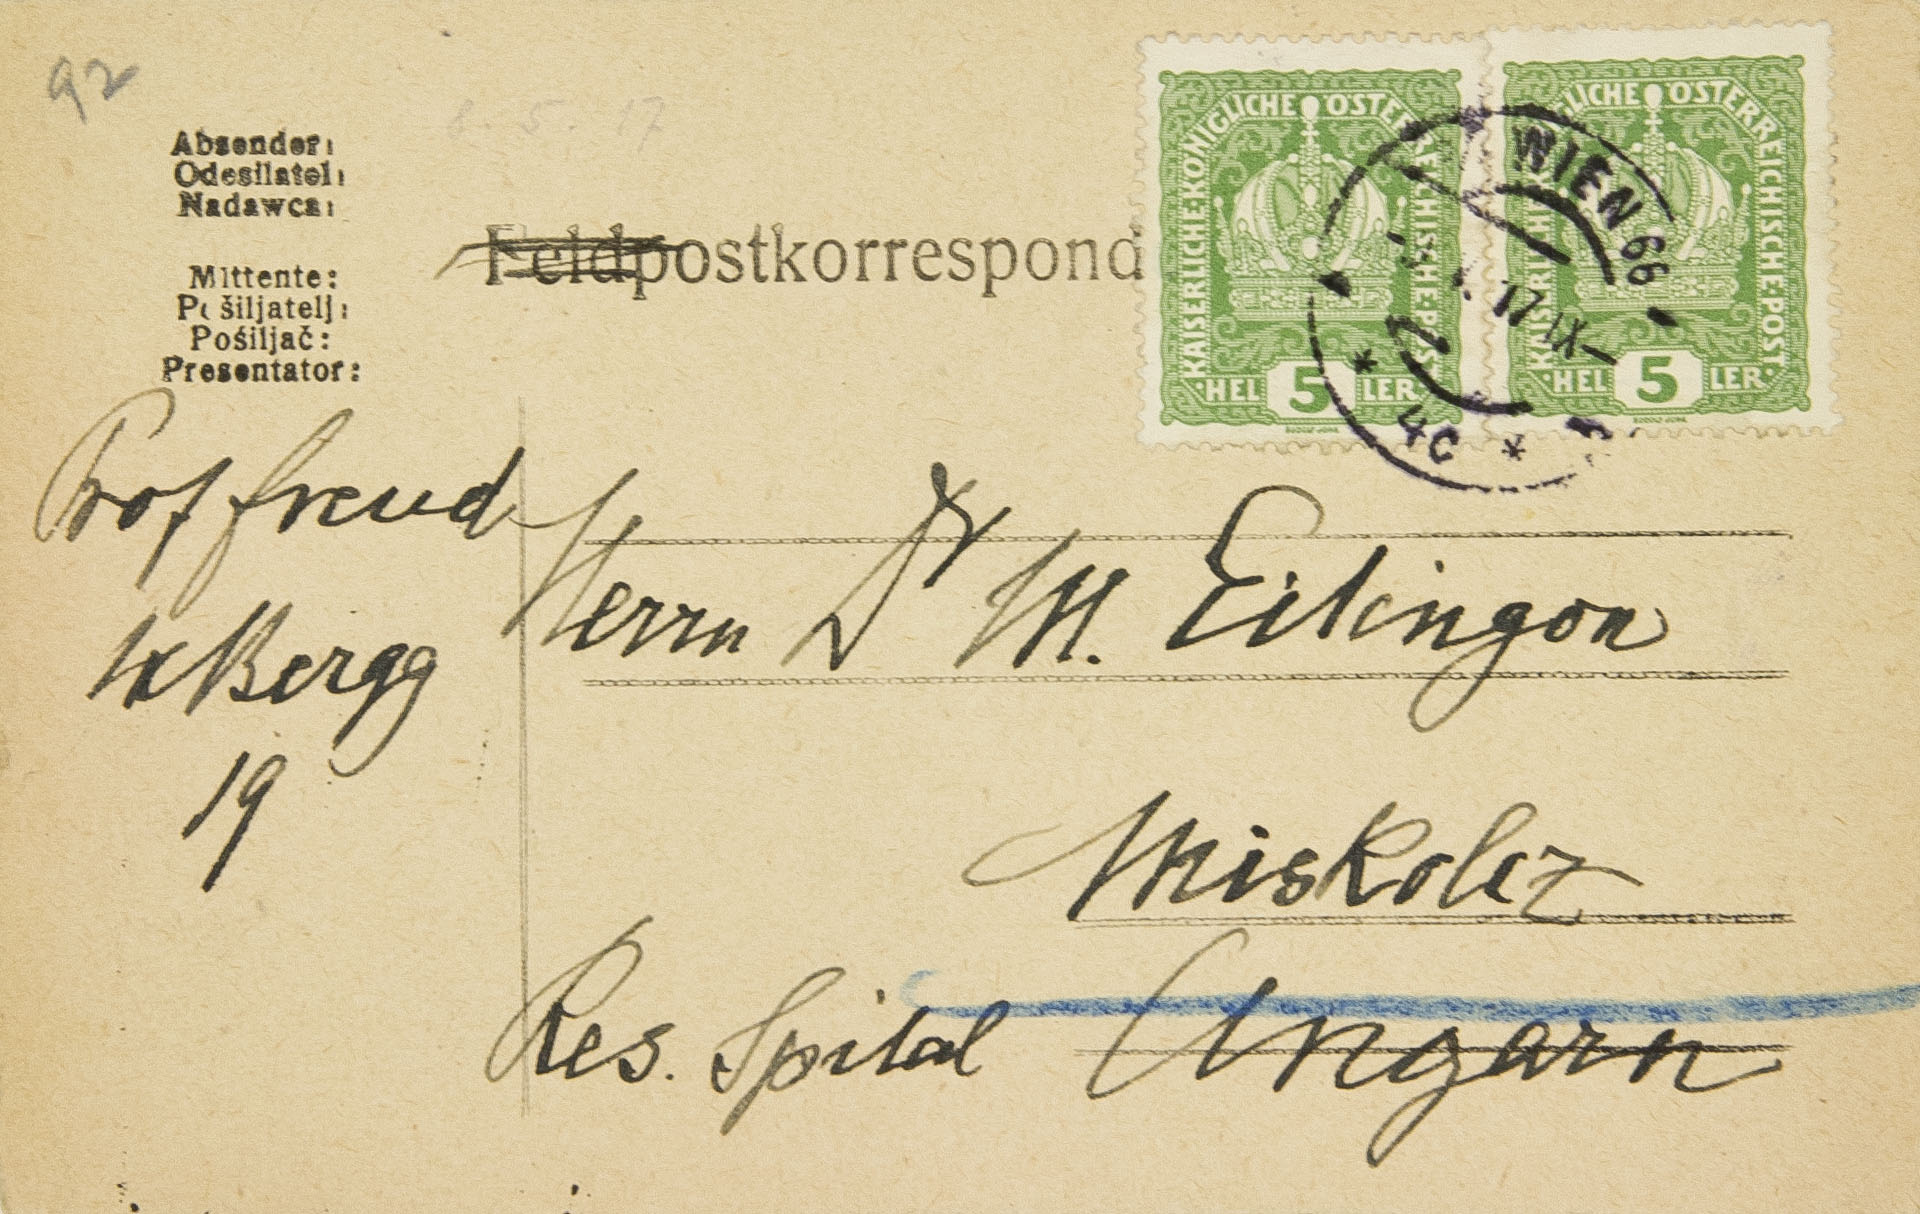 92
8. 5. 17
Absender:
Odesílatel:
Nadawca:
Feldpostkorrespond
Mittente:
Pošiljatelj:
Pošiljač:
Presentator:
KAISERLICHE KÖNIGLICHE ÖSTERREICHISCHE POST
HELLER
5
KAISERLICHE KÖNIGLICHE ÖSTERREICHISCHE POST
HELLER
5
WIEN 66
17 IX
* 4c *
Prof Freud
IX Bergg
19
Herrn Dr M. Eitingon
Miskolcz
Res. Spital Ungarn